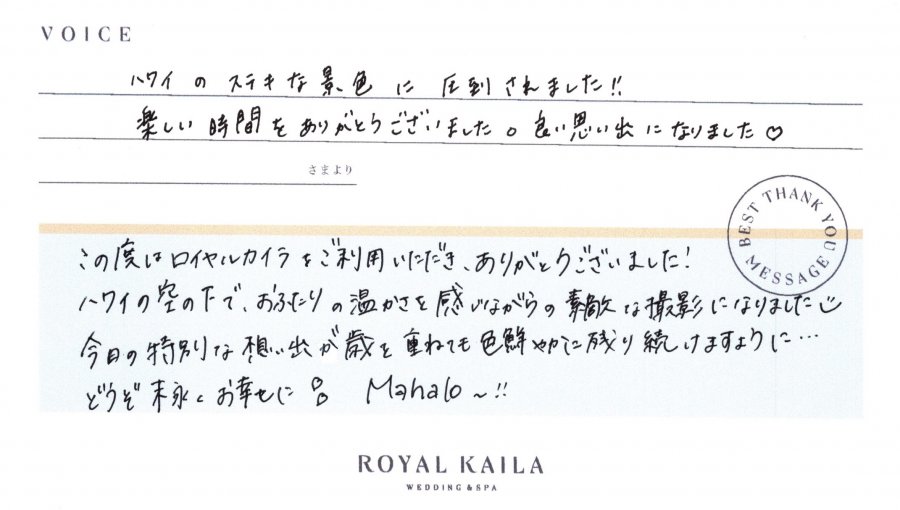 VOICE
ハワイの ステキな 景色 に 圧倒されました!!
楽しい 時間を ありがとうございました。良い思い出 になりました♡
さまより
BEST THANK YOU MESSAGE
この度はロイヤルカイラをご利用いただき、ありがとうございました!
ハワイの空の下で、おふたりの温かさを感じながらの素敵な撮影になりました
今日の特別な想い出が歳を重ねても色鮮やかに残り続けますように…
どうぞ末永くお幸せに Mahalo～!!
ROYAL KAILA
WEDDING & SPA